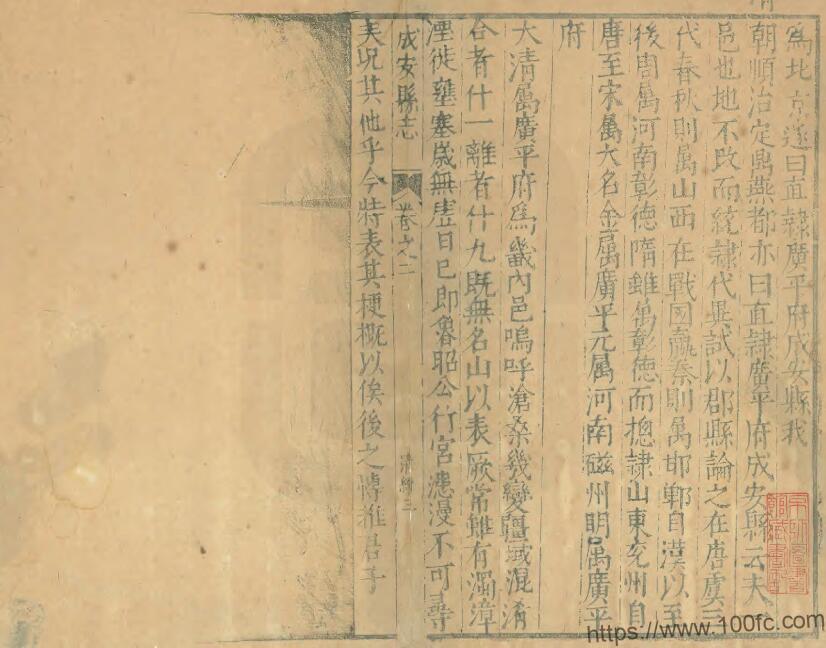 爲北京遂曰直隸廣平府成安縣我
朝順治定鼎燕都亦曰直隸廣平府成安縣云夫
邑也地不改而統隸代異試以郡縣論之在唐虞三
代春秋則屬山西在戰國嬴秦則屬邯鄲自漢以至
後周屬河南彰德隋雖屬彰德而摠隸山東兖州自
唐至宋屬大名金屬廣平元屬河南磁州明屬廣平
府
大清屬廣平府爲畿內邑嗚呼滄桑幾變疆域混淆
合者什一離者什九既無名山以表厥常雖有濁漳
湮徙壅塞歲無虗日已即魯昭公行宮漶漫不可尋
成安縣志 卷之二 清
矣况其他乎今特表其梗概以俟後之博雅君子
https://www.100fc.com